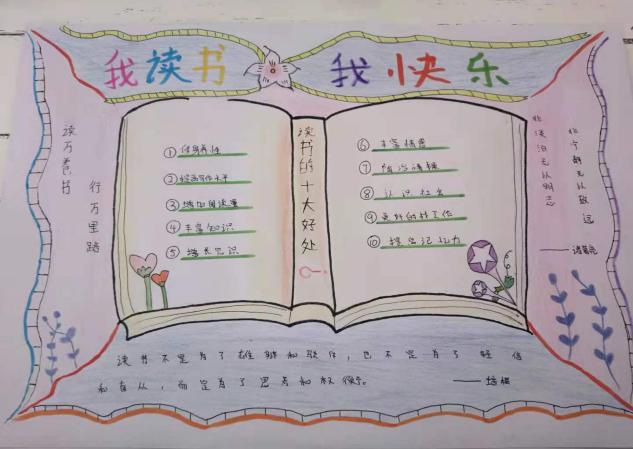 我读书 我快乐
读万卷书
行万里路
读书的十大好处
① 修身养性
② 提高写作水平
③ 增加阅读量
④ 丰富知识
⑤ 增长见识
⑥ 丰富情感
⑦ 陶冶情操
⑧ 认识社会
⑨ 更好的找工作
⑩ 提高记忆力
非淡泊无以明志
非宁静无以致远
——诸葛亮
读书不是为了雄辩和驳斥，也不是为了轻信
和盲从，而是为了思考和权衡。 ——培根